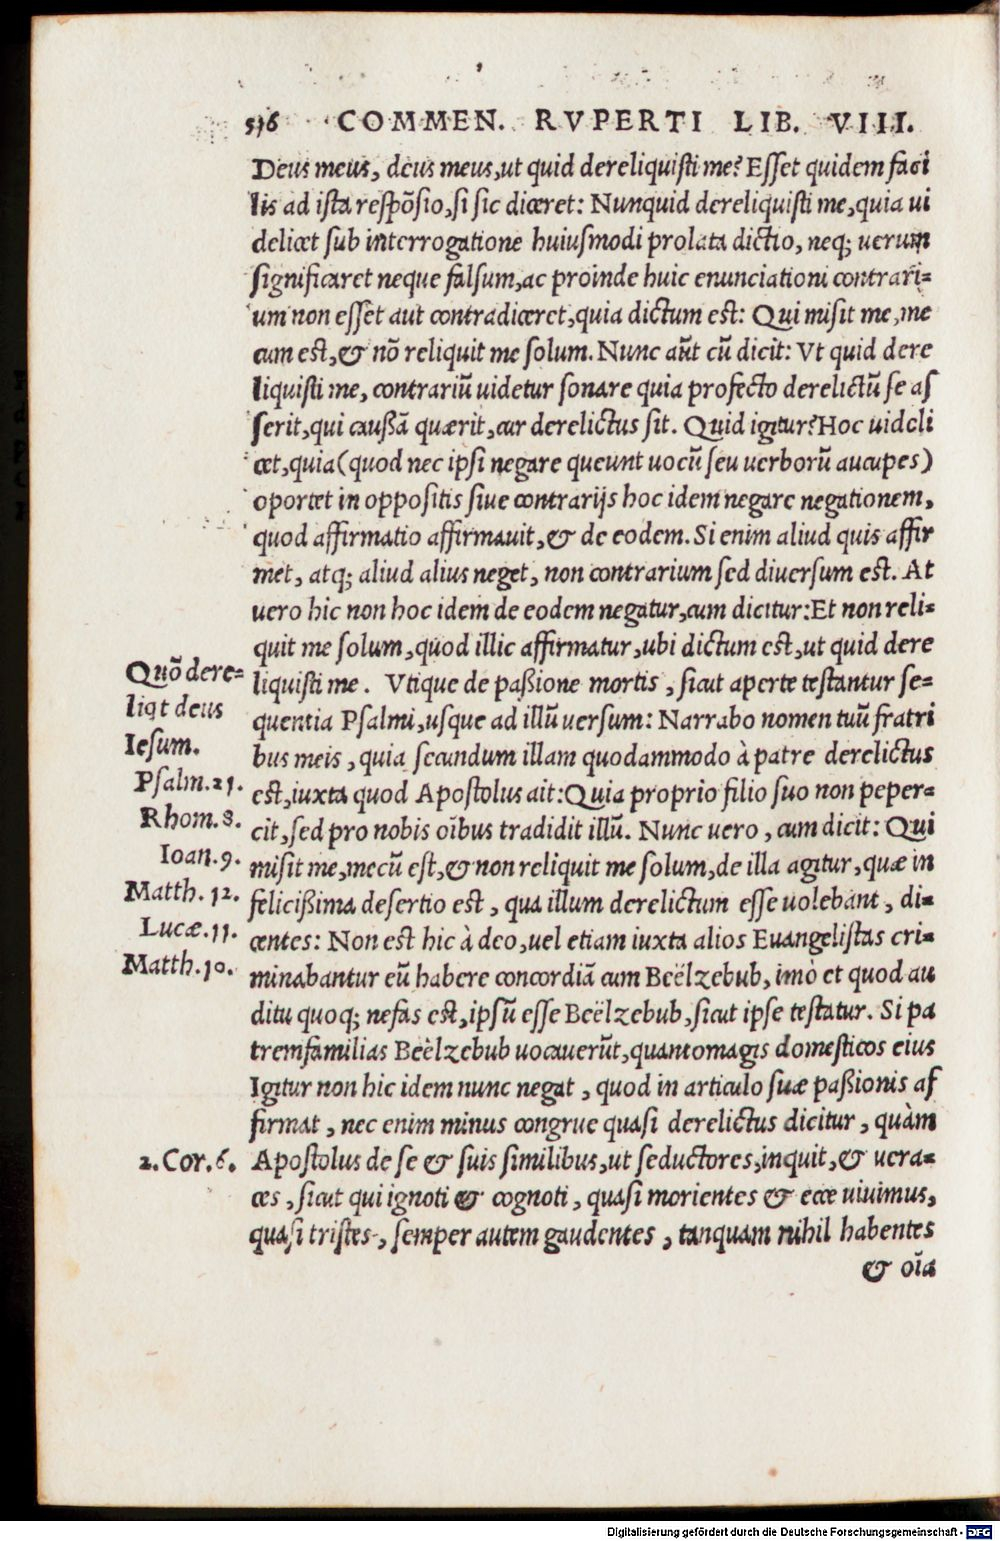 536 COMMEN. RVPERTI LIB. VIII.
Deus meus, deus meus, ut quid dereliquisti me? Esset quidem faci
lis ad ista respõsio, si sic diceret: Nunquid dereliquisti me, quia ui
delicet sub interrogatione huiusmodi prolata dictio, neq; uerum
significaret neque falsum, ac proinde huic enunciationi contrari-
um non esset aut contradiceret, quia dictum est: Qui misit me, me
cum est, & nõ reliquit me solum. Nunc aũt cũ dicit: Vt quid dere
liquisti me, contrariũ uidetur sonare quia profecto derelictũ se as
serit, qui caußã quærit, cur derelictus sit. Quid igitur? Hoc uideli
cet, quia (quod nec ipsi negare queunt uocũ seu uerborũ aucupes)
oportet in oppositis siue contrarijs hoc idem negare negationem,
quod affirmatio affirmauit, & de eodem. Si enim aliud quis affir
met, atq; aliud alius neget, non contrarium sed diuersum est. At
uero hic non hoc idem de eodem negatur, cum dicitur: Et non reli-
quit me solum, quod illic affirmatur, ubi dictum est, ut quid dere
liquisti me. Vtique de paßione mortis, sicut aperte testantur se-
quentia Psalmi, usque ad illũ uersum: Narrabo nomen tuũ fratri
bus meis, quia secundum illam quodammodo à patre derelictus
est, iuxta quod Apostolus ait: Quia proprio filio suo non peper-
cit, sed pro nobis oĩbus tradidit illũ. Nunc uero, cum dicit: Qui
misit me, mecũ est, & non reliquit me solum, de illa agitur, quæ in
felicißima desertio est, qua illum derelictum esse uolebant, di-
centes: Non est hic à deo, uel etiam iuxta alios Euangelistas cri-
minabantur eũ habere concordiã cum Beëlzebub, imò et quod au
ditu quoq; nefas est, ipsũ esse Beëlzebub, sicut ipse testatur. Si pa
tremfamilias Beëlzebub uocauerũt, quantomagis domesticos eius
Igitur non hic idem nunc negat, quod in articulo suæ paßionis af
firmat, nec enim minus congrue quasi derelictus dicitur, quàm
Apostolus de se & suis similibus, ut seductores, inquit, & uera-
ces, sicut qui ignoti & cognoti, quasi morientes & ecce uiuimus,
quasi tristes, semper autem gaudentes, tanquam nihil habentes
& oĩa
Quõ dere-
liqt deus
Iesum.
Psalm. 21.
Rhom. 8.
Ioan. 9.
Matth. 12.
Lucæ. 11.
Matth. 10.
2. Cor. 6.
Digitalisierung gefördert durch die Deutsche Forschungsgemeinschaft - DFG